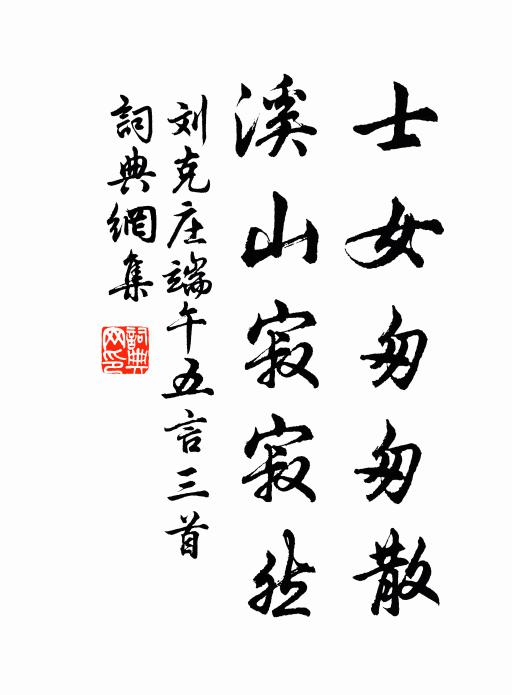 士女匆匆散
溪山寂寂然
刘克庄端午五言三首
詞典網集
詞典网印